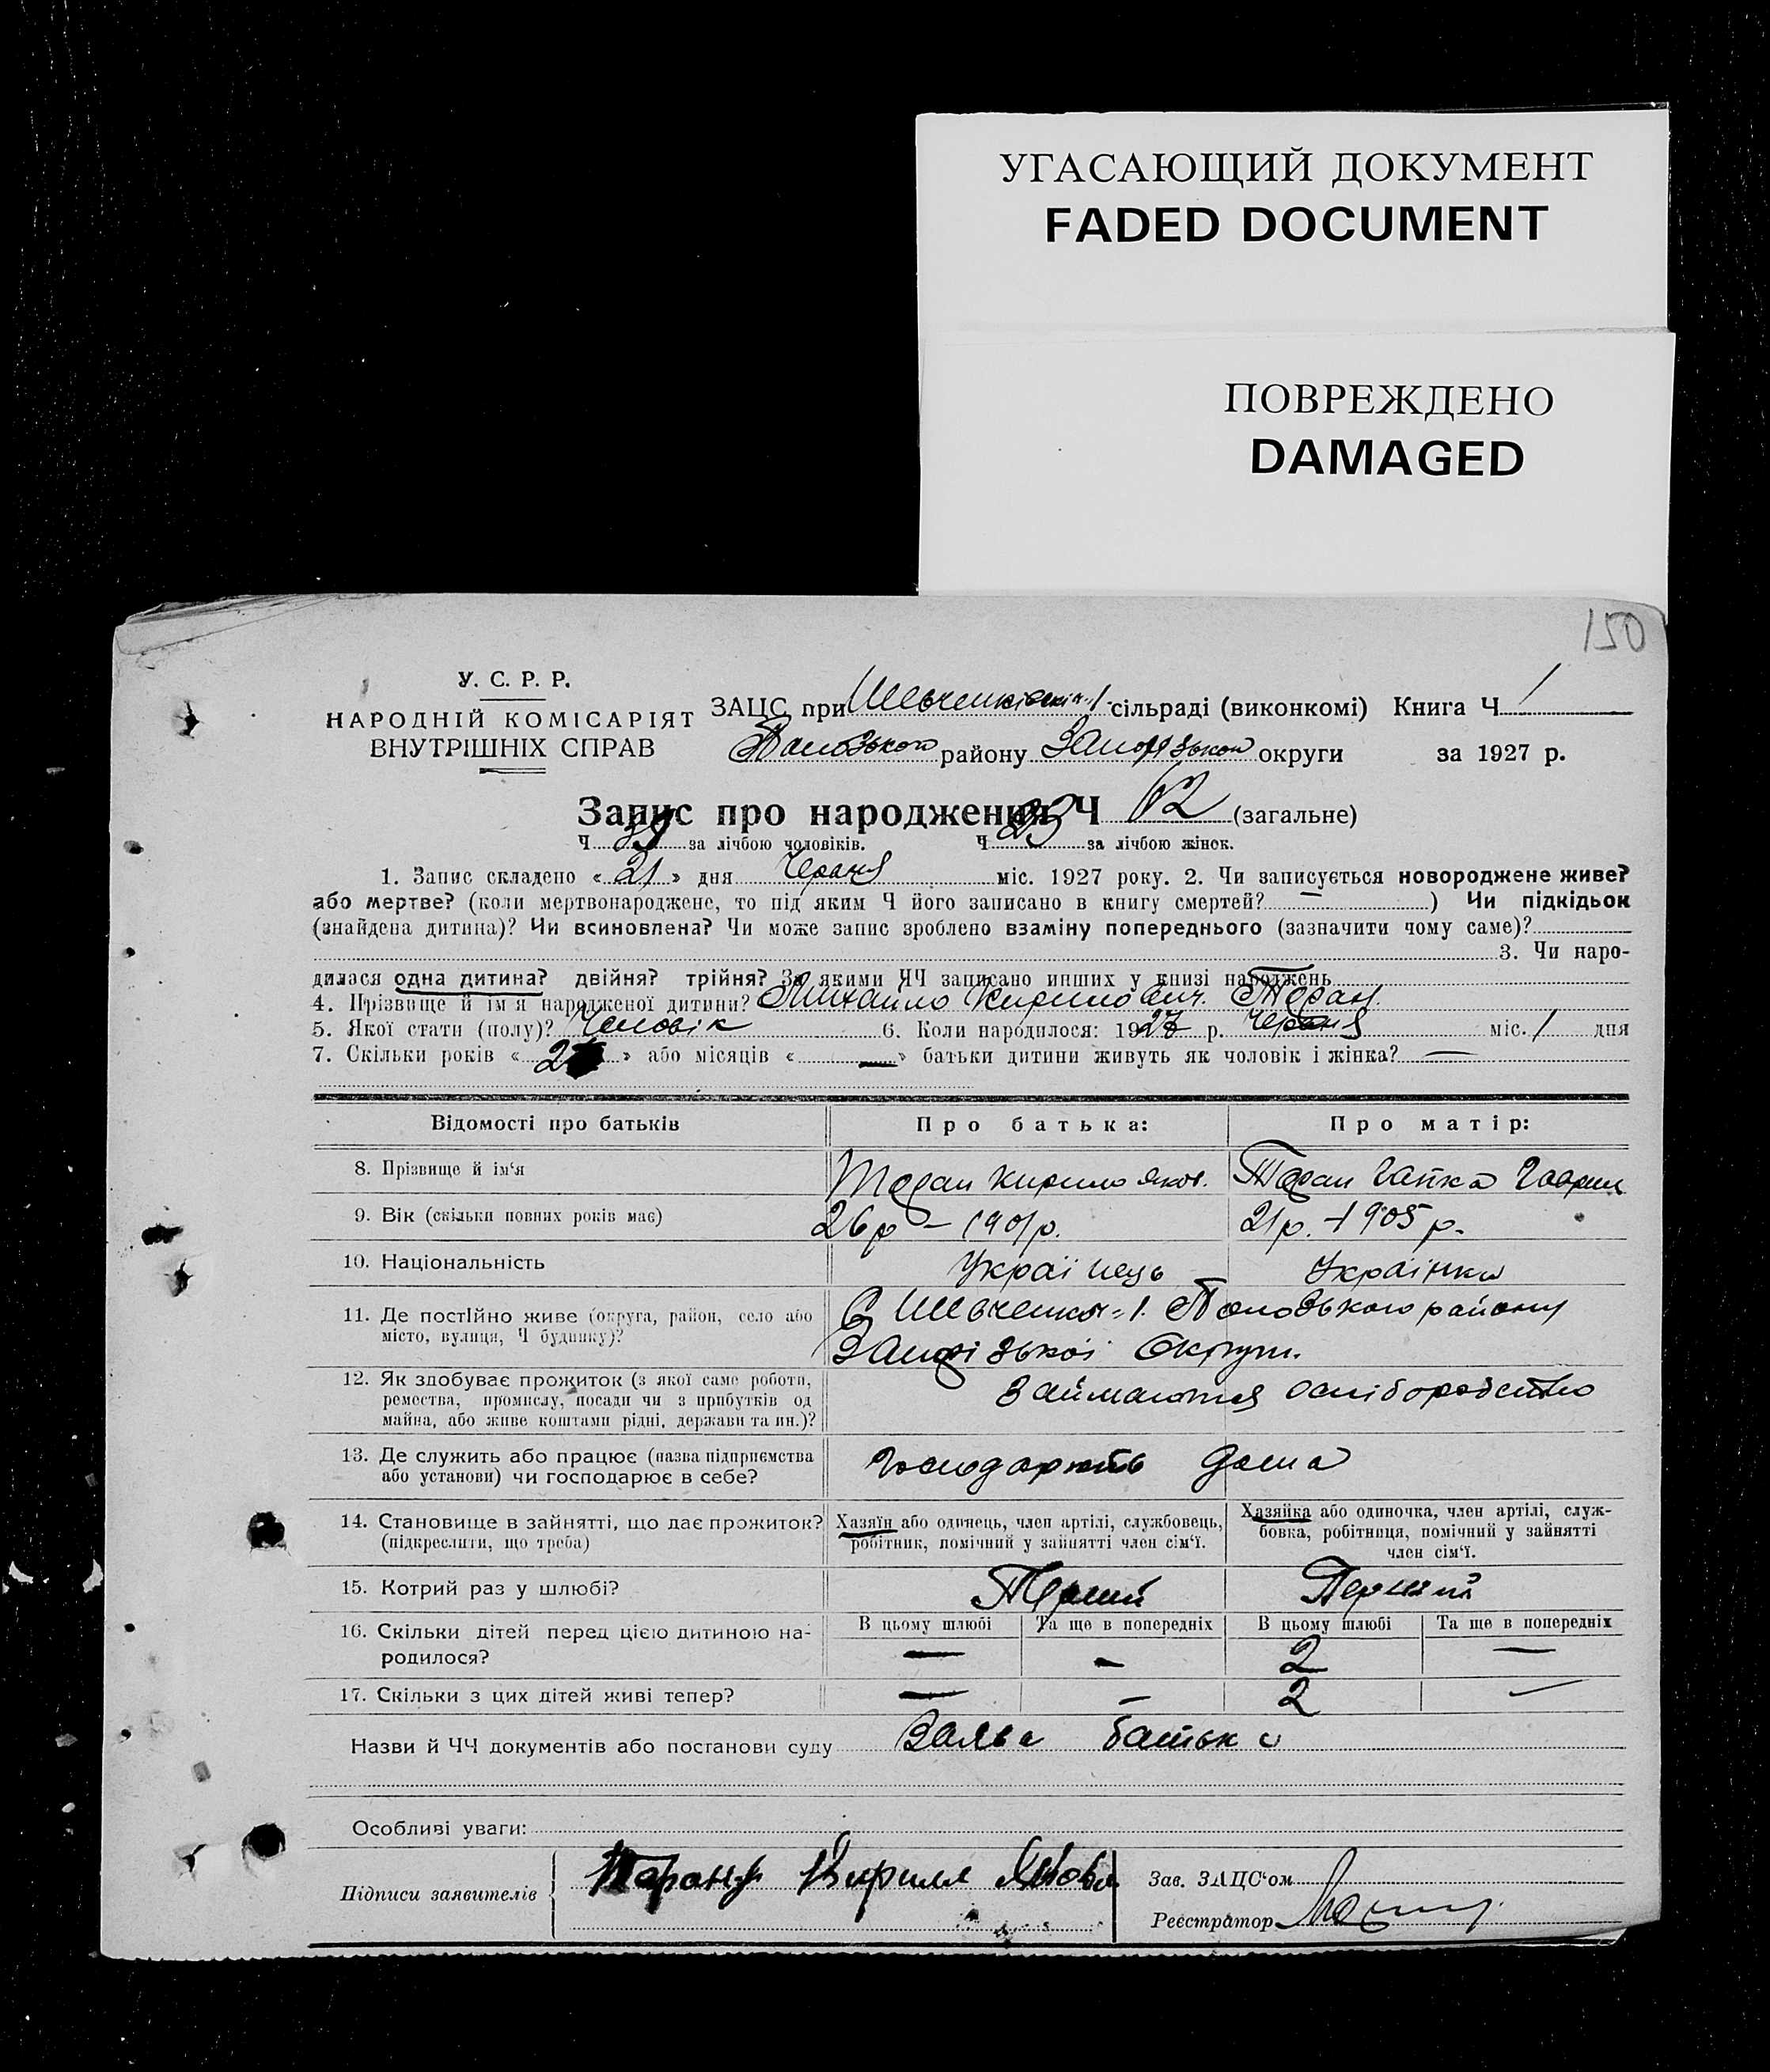 УГАСАЮЩИЙ ДОКУМЕНТ
FADED DOCUMENT
ПОВРЕЖДЕНО
DAMAGED
150
У. С. Р. Р.
НАРОДНІЙ КОМІСАРІЯТ
ВНУТРІШНІХ СПРАВ
ЗАЦС при Шевченківскій-1 сільраді (виконкомі) Книга Ч 1
району округи за 1927 р.
Запис про народження Ч 62 (загальне)
Ч 39 за лічбою чоловіків. Ч 23 за лічбою жінок.
1. Запис складено « 21 » дня Червня міс. 1927 року. 2. Чи записується новороджене живе?
або мертве? (коли мертвонароджене, то під яким Ч його записано в книгу смертей? — ) Чи підкідьок
(знайдена дитина)? Чи всиновлена? Чи може запис зроблено взаміну попереднього (зазначити чому саме)?
3. Чи наро-
дилася одна дитина? двійня? трійня? За якими ЧЧ записано инших у книзі народжень
4. Прізвище й ім'я народженої дитини? Михайло Кирилович. Таран.
5. Якої стати (полу)? Чоловік 6. Коли народилося: 1927 р. Червня міс. 1 дня
7. Скільки років « 2 » або місяців « — » батьки дитини живуть як чоловік і жінка? —
Відомості про батьків Про батька: Про матір:
8. Прізвище й ім‘я Таран Кирило Яков. Таран Гапка Гаврил
9. Вік (скільки повних років має) 26 р – 1901 р. 21 р. – 1905 р.
10. Національність Українець Українка
11. Де постійно живе (округа, район, село або
місто, вулиця, Ч будинку)?
С Шевченков-1. Пологського району
Запорізької Округи.
12. Як здобуває прожиток (з якої саме роботи,
ремества, промислу, посади чи з прибутків од
майна, або живе коштами рідні, держави та ин.)?
Займаются
13. Де служить або працює (назва підприємства
або установи) чи господарює в себе?
Господарюють дома
14. Становище в зайнятті, що дає прожиток?
(підкреслити, що треба)
Хазяїн або одинець, член артілі, службовець,
робітник, помічний у зайнятті член сім‘ї.
Хазяйка або одиночка, член артілі, служ-
бовка, робітниця, помічний у зайнятті
член сім‘ї.
15. Котрий раз у шлюбі? Перший Перший
16. Скільки дітей перед цією дитиною на-
родилося?
В цьому шлюбі Та ще в попередніх В цьому шлюбі Та ще в попередніх
— — 2 —
17. Скільки з цих дітей живі тепер? — — 2 —
Назви й ЧЧ документів або постанови суду Заява батька
Особливі уваги:
Підписи заявителів Таран Кирилл Яковл
Зав. ЗАЦС‘ом
Реєстратор